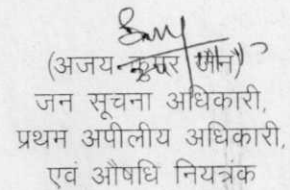 (अजय कुमार जैन)
जन सूचना अधिकारी,
प्रथम अपीलीय अधिकारी,
एवं औषधि नियत्रंक